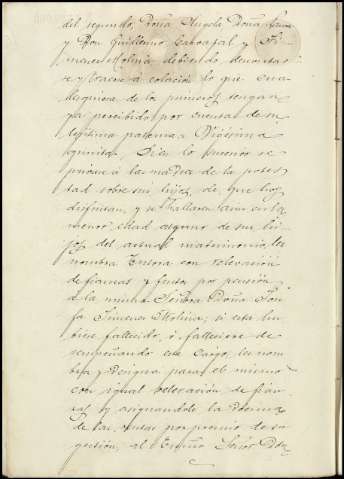 del segundo, Doña Angela Doña
y Don Guillermo Carvajal y Ji-
menez Molina debiendo descontar
se y traerse á colación lo que cua-
lesquiera de los primeros tengan
ya percibido por cuenta de su
legítima paterna. Vigésima
quinta. Si en lo sucesivo se
privare á la madre de la potes-
tad sobre sus hijos, de que hoy
disfrutan, y se hallaren aun en la
menor edad alguno de sus hi-
jos del actual matrimonio, les
nombra Tutora con relevación
de fianzas y frutos por pensión,
á la misma Señora Doña Jose-
fa Jimenez Molina; si esta hu-
biese fallecido, ó falleciere de-
sempeñando este cargo, les nom-
bra y designa para el mismo
con igual relevación de fian-
zas y asignandole la Decima
de las rentas por premio de su
gestión, al Exmo Señor Don